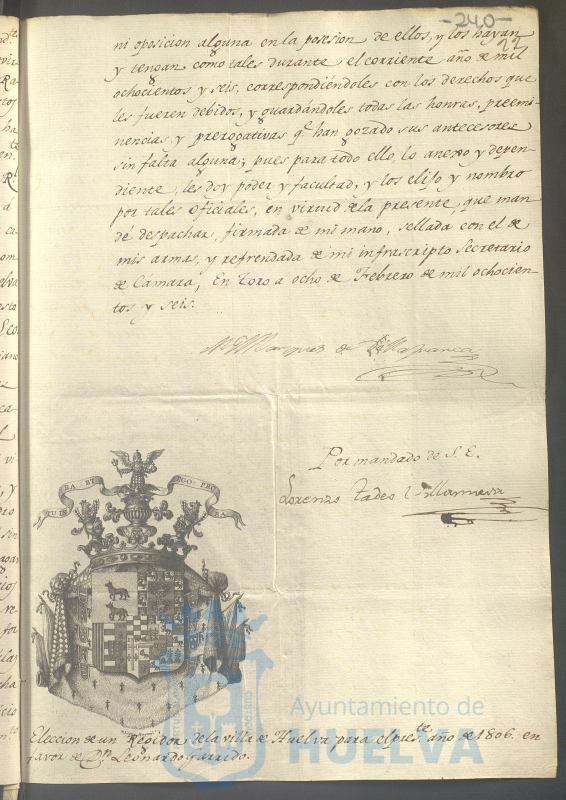 -240-
22
ni oposicion alguna en la posesion de ellos, y los hayan
y tengan como tales durante el corriente año de mil
ochocientos y seis, correspondiéndoles con los derechos que
les fueren debidos, y guardándoles todas las honras, preemi-
nencias, y prerogativas qe. han gozado sus antecesores
sin falta alguna; pues para todo ello, lo anexo y depen-
diente, les doy poder y facultad, y los elijo y nombro
por tales Oficiales, en virtud de la presente, que man-
dé despachar, firmada de mi mano, sellada con el de
mis armas, y refrendada de mi infrascripto Secretario
de Cámara, En Toro a ocho de Febrero de mil ochocien-
tos y seis.
El Marques de Villafranca
Por mandado de S. E.
Lorenzo Tadeo Villanueva
TU IN
RA BI
GO PRO
ERA
Ayuntamiento de
HUELVA
Eleccion de un Regidor de la villa de Huelva para el preste. año de 1806. en
favor de Dn. Leonardo Garrido.